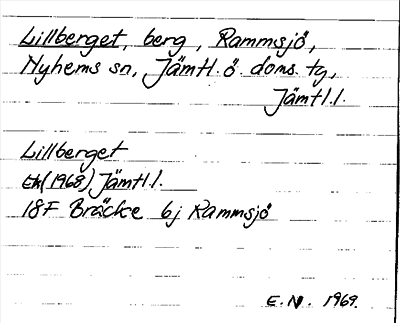 Lillberget, berg, Rammsjö,
Nyhems sn, Jämtl. ö. doms. tg,
Jämtl. l.
Lillberget
Ek (1968) Jämtl. l.
18F Bräcke 6j Rammsjö
E.N. 1969.